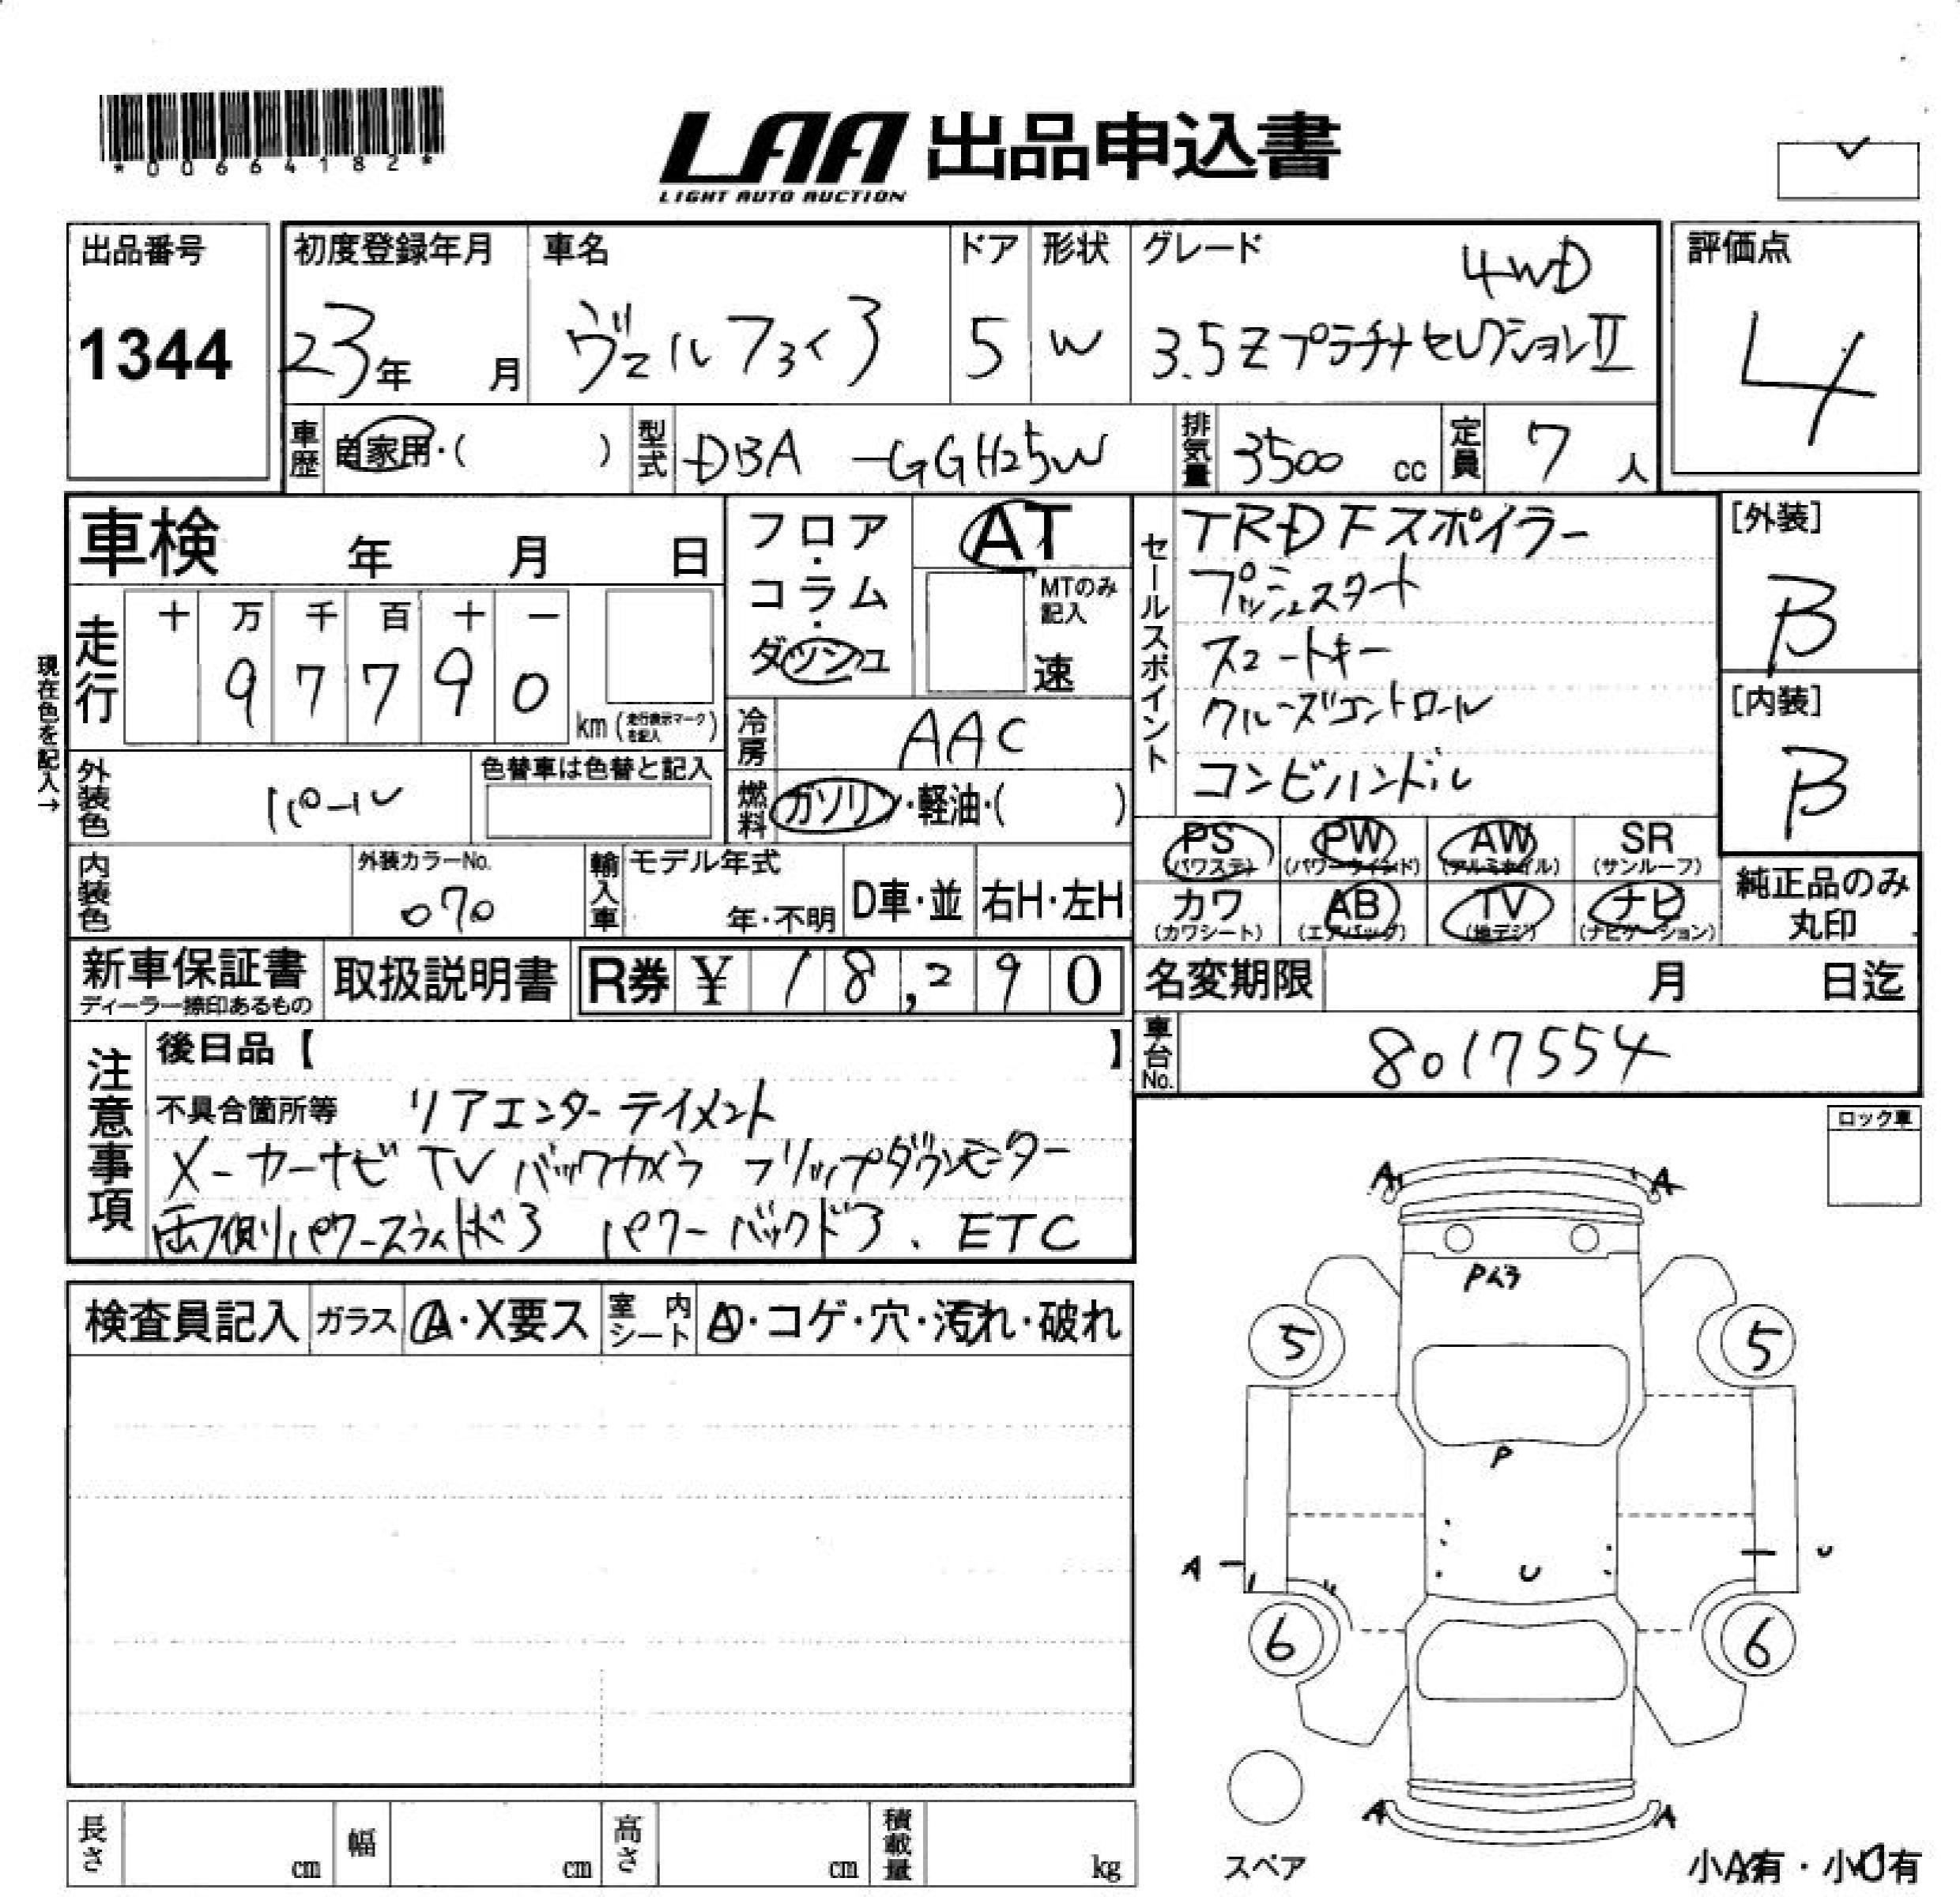 *00664182*
LAA 出品申込書
LIGHT AUTO AUCTION
出品番号
1344
初度登録年月
23年 月
車名
ヴェルファイア
ドア
5
形状
W
グレード
4WD
3.5Zプラチナセレクション II
評価点
4
車歴 自家用・( )
型式 DBA-GGH25W
排気量 3500 cc
定員 7 人
車検 年 月 日
現在色を記入→
走行
十 万 千 百 十 一
9 7 7 9 0
km (走行表示マークを記入)
フロア・コラム・ダッシュ
AT
MTのみ記入
速
冷房 AAC
燃料 ガソリン・軽油・( )
外装色 パール
色替車は色替と記入
内装色
外装カラーNo.
070
輸入車
モデル年式
年・不明
D車・並
右H・左H
セールスポイント
TRD Fスポイラー
プッシュスタート
スマートキー
クルーズコントロール
コンビハンドル
[外装]
B
[内装]
B
PS (パワステ)
PW (パワーウインド)
AW (アルミホイル)
SR (サンルーフ)
カワ (カワシート)
AB (エアバッグ)
TV (地デジ)
ナビ (ナビゲーション)
純正品のみ
丸印
新車保証書
ディーラー捺印あるもの
取扱説明書
R券 ¥ 18,290
名変期限 月 日迄
車台No. 8017554
注意事項
後日品【 】
不具合箇所等 リアエンターテイメント
メーカーナビ TV バックカメラ フリップダウンモニター
両側パワースライドドア パワーバックドア、ETC
検査員記入
ガラス A・X要ス
室内シート
・コゲ・穴・汚れ・破れ
ロック車
A A
Pハラ
5 5
P
A U U
6 6
A A
スペア
小A有・小U有
長さ cm
幅 cm
高さ cm
積載量 kg